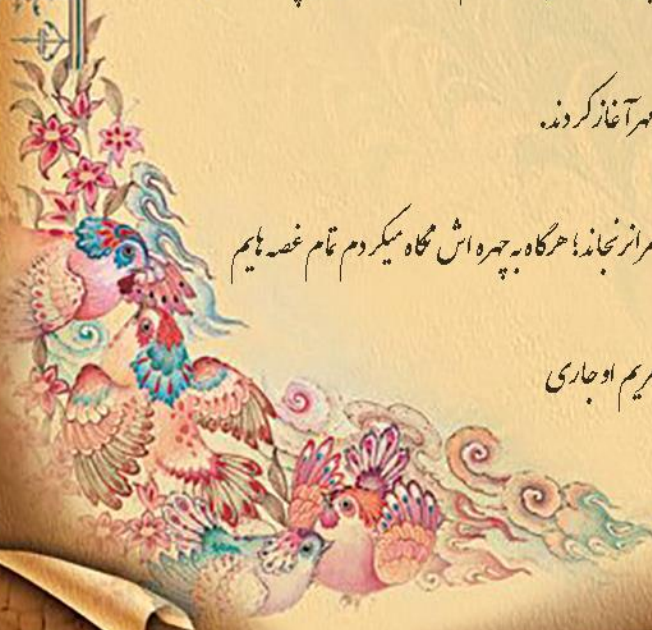 مهر آغاز کردند.
مرا نرنجاند! هرگاه به چهره اش نگاه میکردم تمام غصه هایم
او جاری